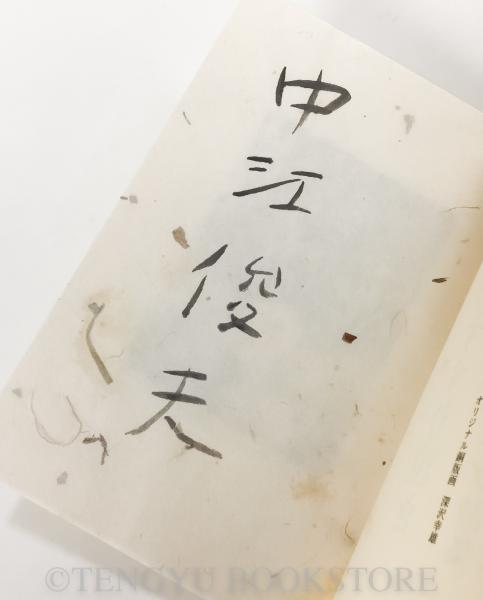 中江俊夫
オリジナル銅版画 深沢幸雄
©TENGYU BOOKSTORE